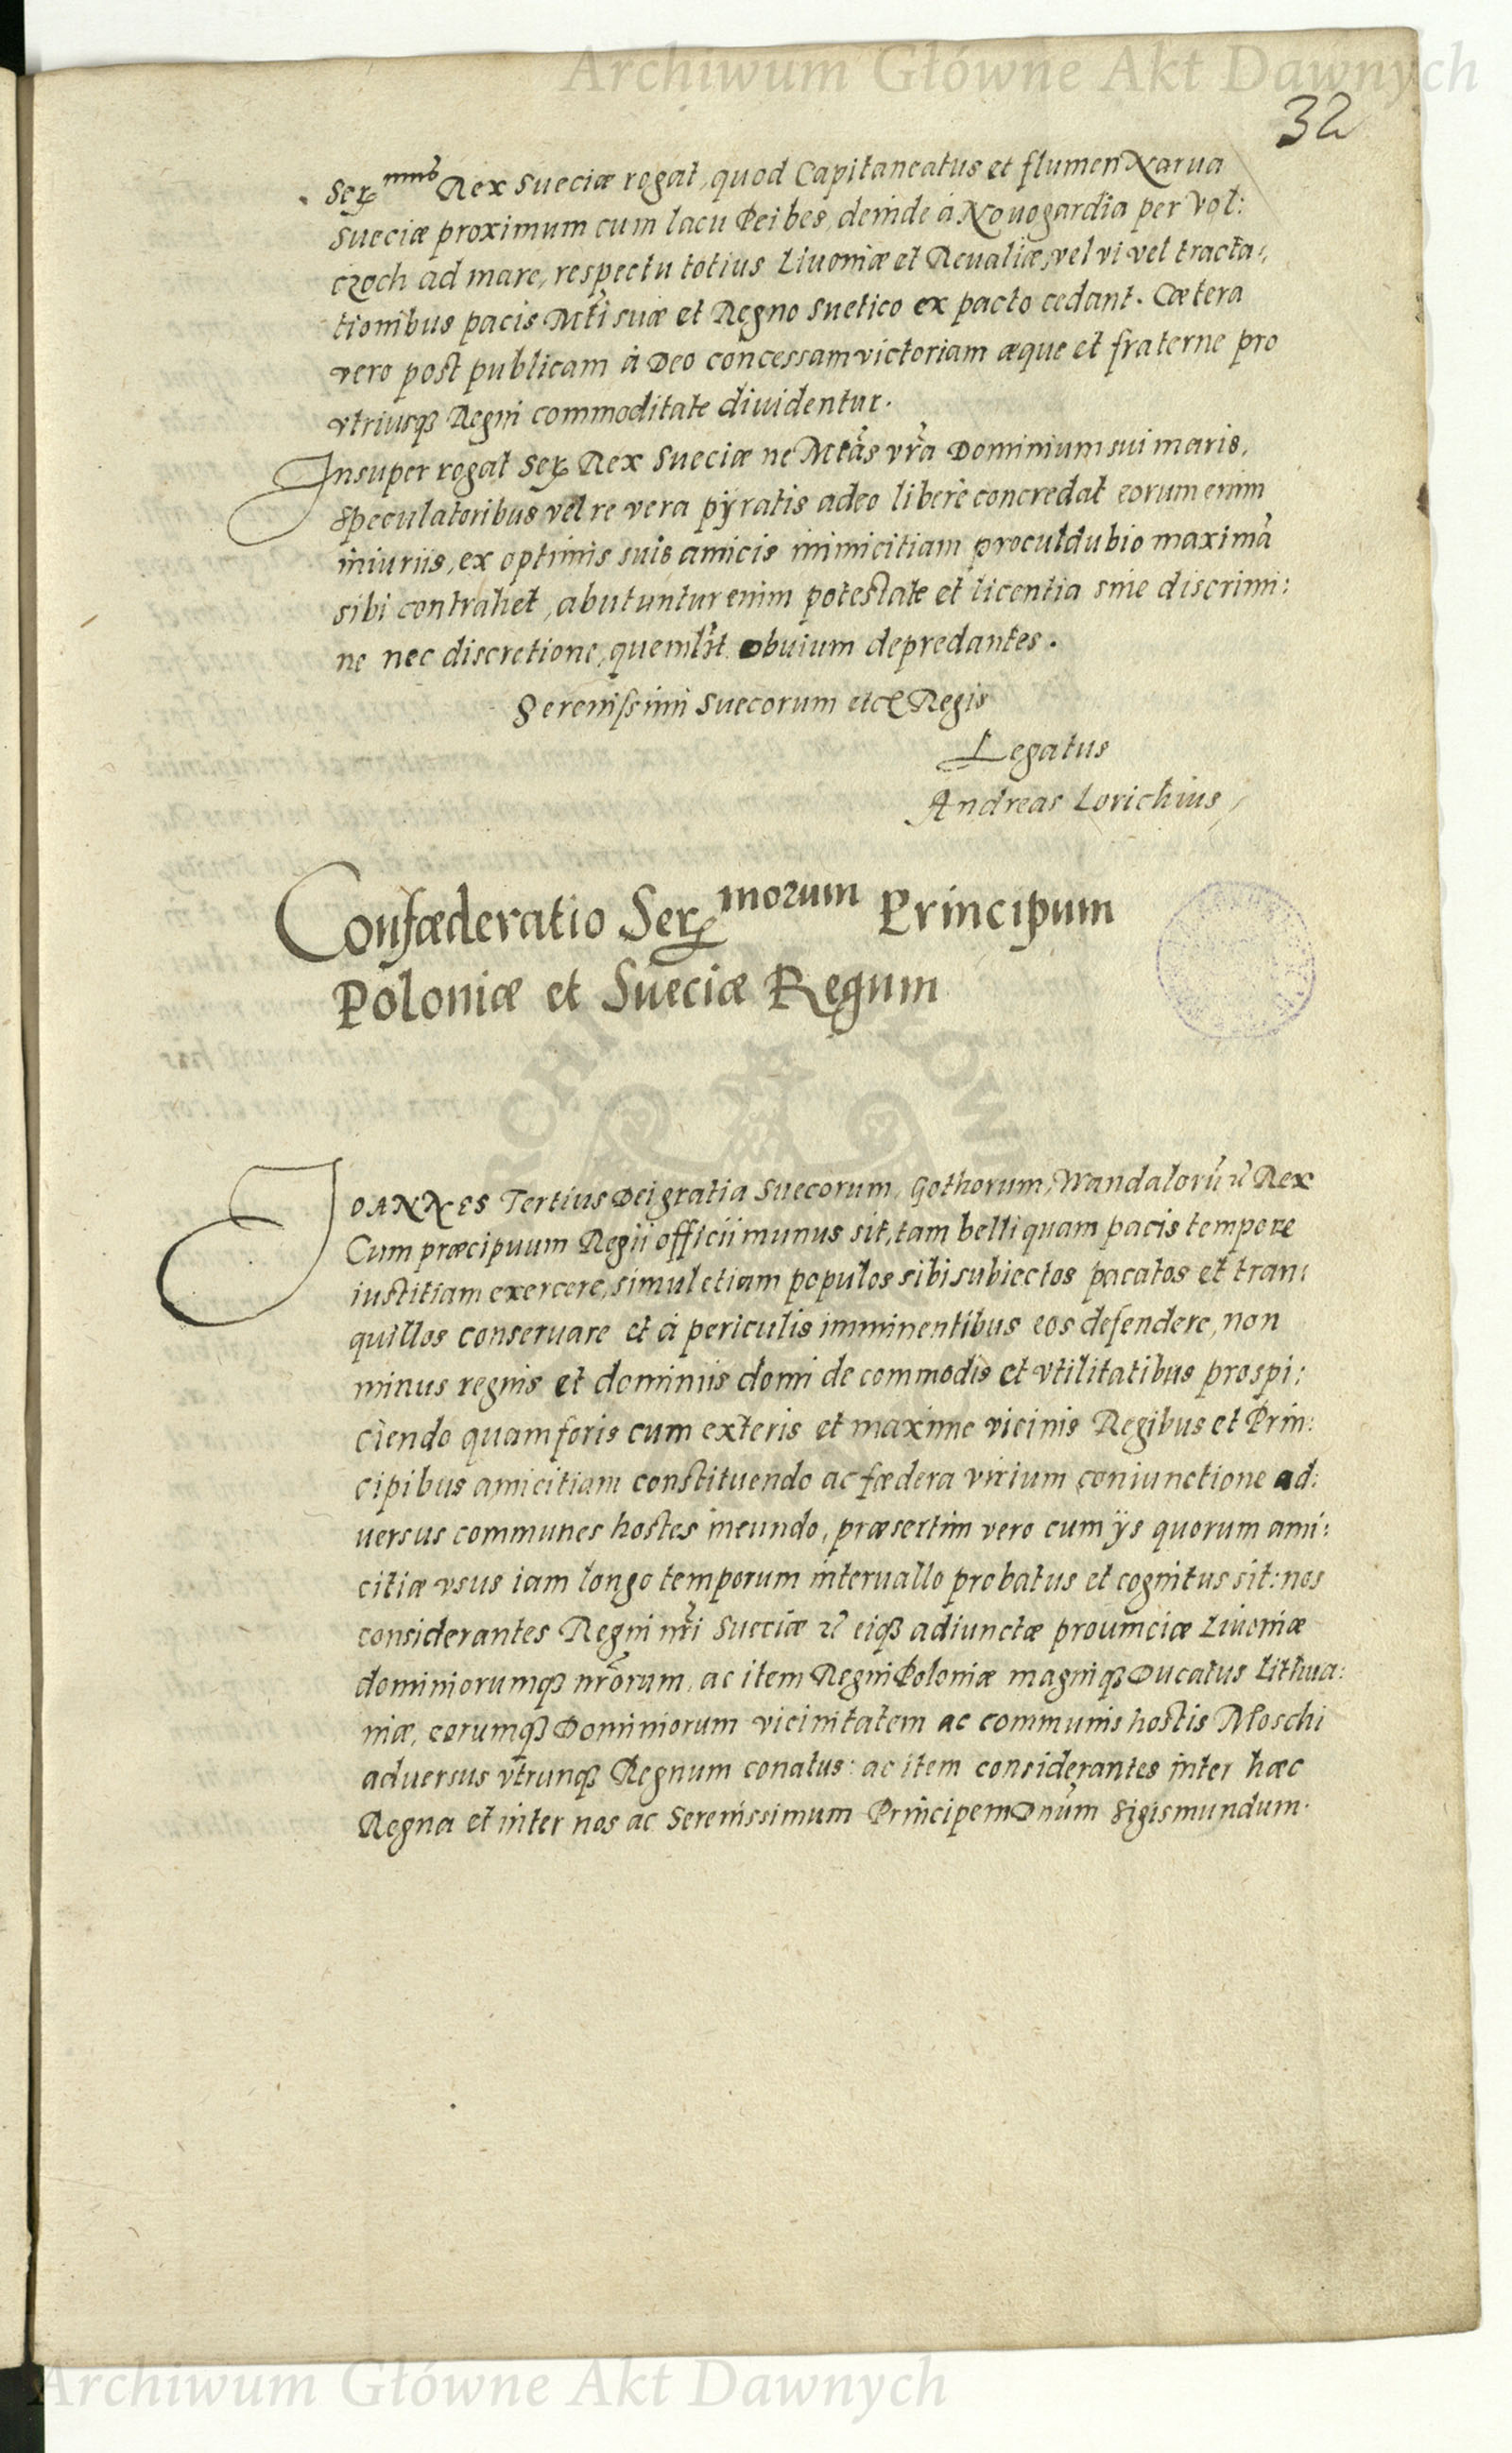 Archiwum Główne Akt Dawnych
32
Ser.mus Rex Sueciæ rogat, quod Capitaneatus et flumen Narua
Sueciæ proximum cum lacu Peibes, deinde à Nouogardia per Vol:
czoch ad mare, respectu totius Liuoniæ et Reualiæ, vel vi vel tracta:
tionibus pacis Mti suæ et Regno Suetico ex pacto cedant. Cætera
vero post publicam à Deo concessam victoriam æque et fraterne pro
vtriusq Regni commoditate diuidentur.
Insuper rogat Ser. Rex Sueciæ ne Mtas vra Dominium sui maris,
speculatoribus vel re vera pÿratis adeo liberè concredat eorum enim
iniuriis, ex optimis suis amicis inimicitiam proculdubio maximã
sibi contrahet, abutuntur enim potestate et licentia sine discrimi:
ne nec discretione, quemlbt obuium depredantes.
Serenissimi Suecorum etc Regis
Legatus
Andreas Lorichius
Confæderatio Ser.morum Principum
Poloniæ et Sueciæ Regum
IOANNES Tertius Dei gratia Suecorum, Gothorum, Wandalorũ ⁊c Rex
Cum præcipuum Regii officii munus sit, tam belli quam pacis tempore
iustitiam exercere, simul etiam populos sibi subiectos pacatos et tran:
quillos conseruare et à periculis imminentibus eos defendere, non
minus regnis et dominiis domi de commodis et vtilitatibus prospi:
ciendo quam foris cum exteris et maxime vicinis Regibus et Prin:
cipibus amicitiam constituendo ac fædera virium coniunctione ad:
uersus communes hostes ineundo, præsertim vero cum ijs quorum ami:
citiæ vsus iam longo temporum interuallo probatus et cognitus sit: nos
considerantes Regni nri Sueciæ ⁊c eiq adiunctæ prouinciæ Liuoniæ
dominiorumq nrorum, ac item Regni Poloniæ magniq Ducatus Lithua:
niæ, eorumq Dominiorum vicinitatem ac communis hostis Moschi
aduersus vtrunq Regnum conatus: ac item considerantes inter hæc
Regna et inter nos ac Serenissimum Principem Dnum Sigismundum.
Archiwum Główne Akt Dawnych